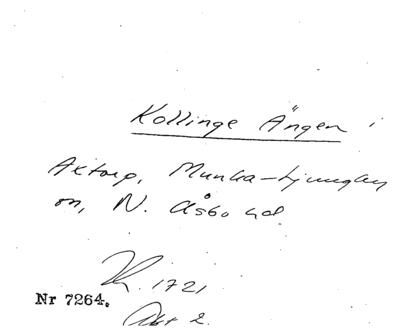 Kollinge Ängen i
Axtorp, Munka-Ljungby
sn, N. Åsbo hd
K. 1721
Nr 7264.
Akt 2